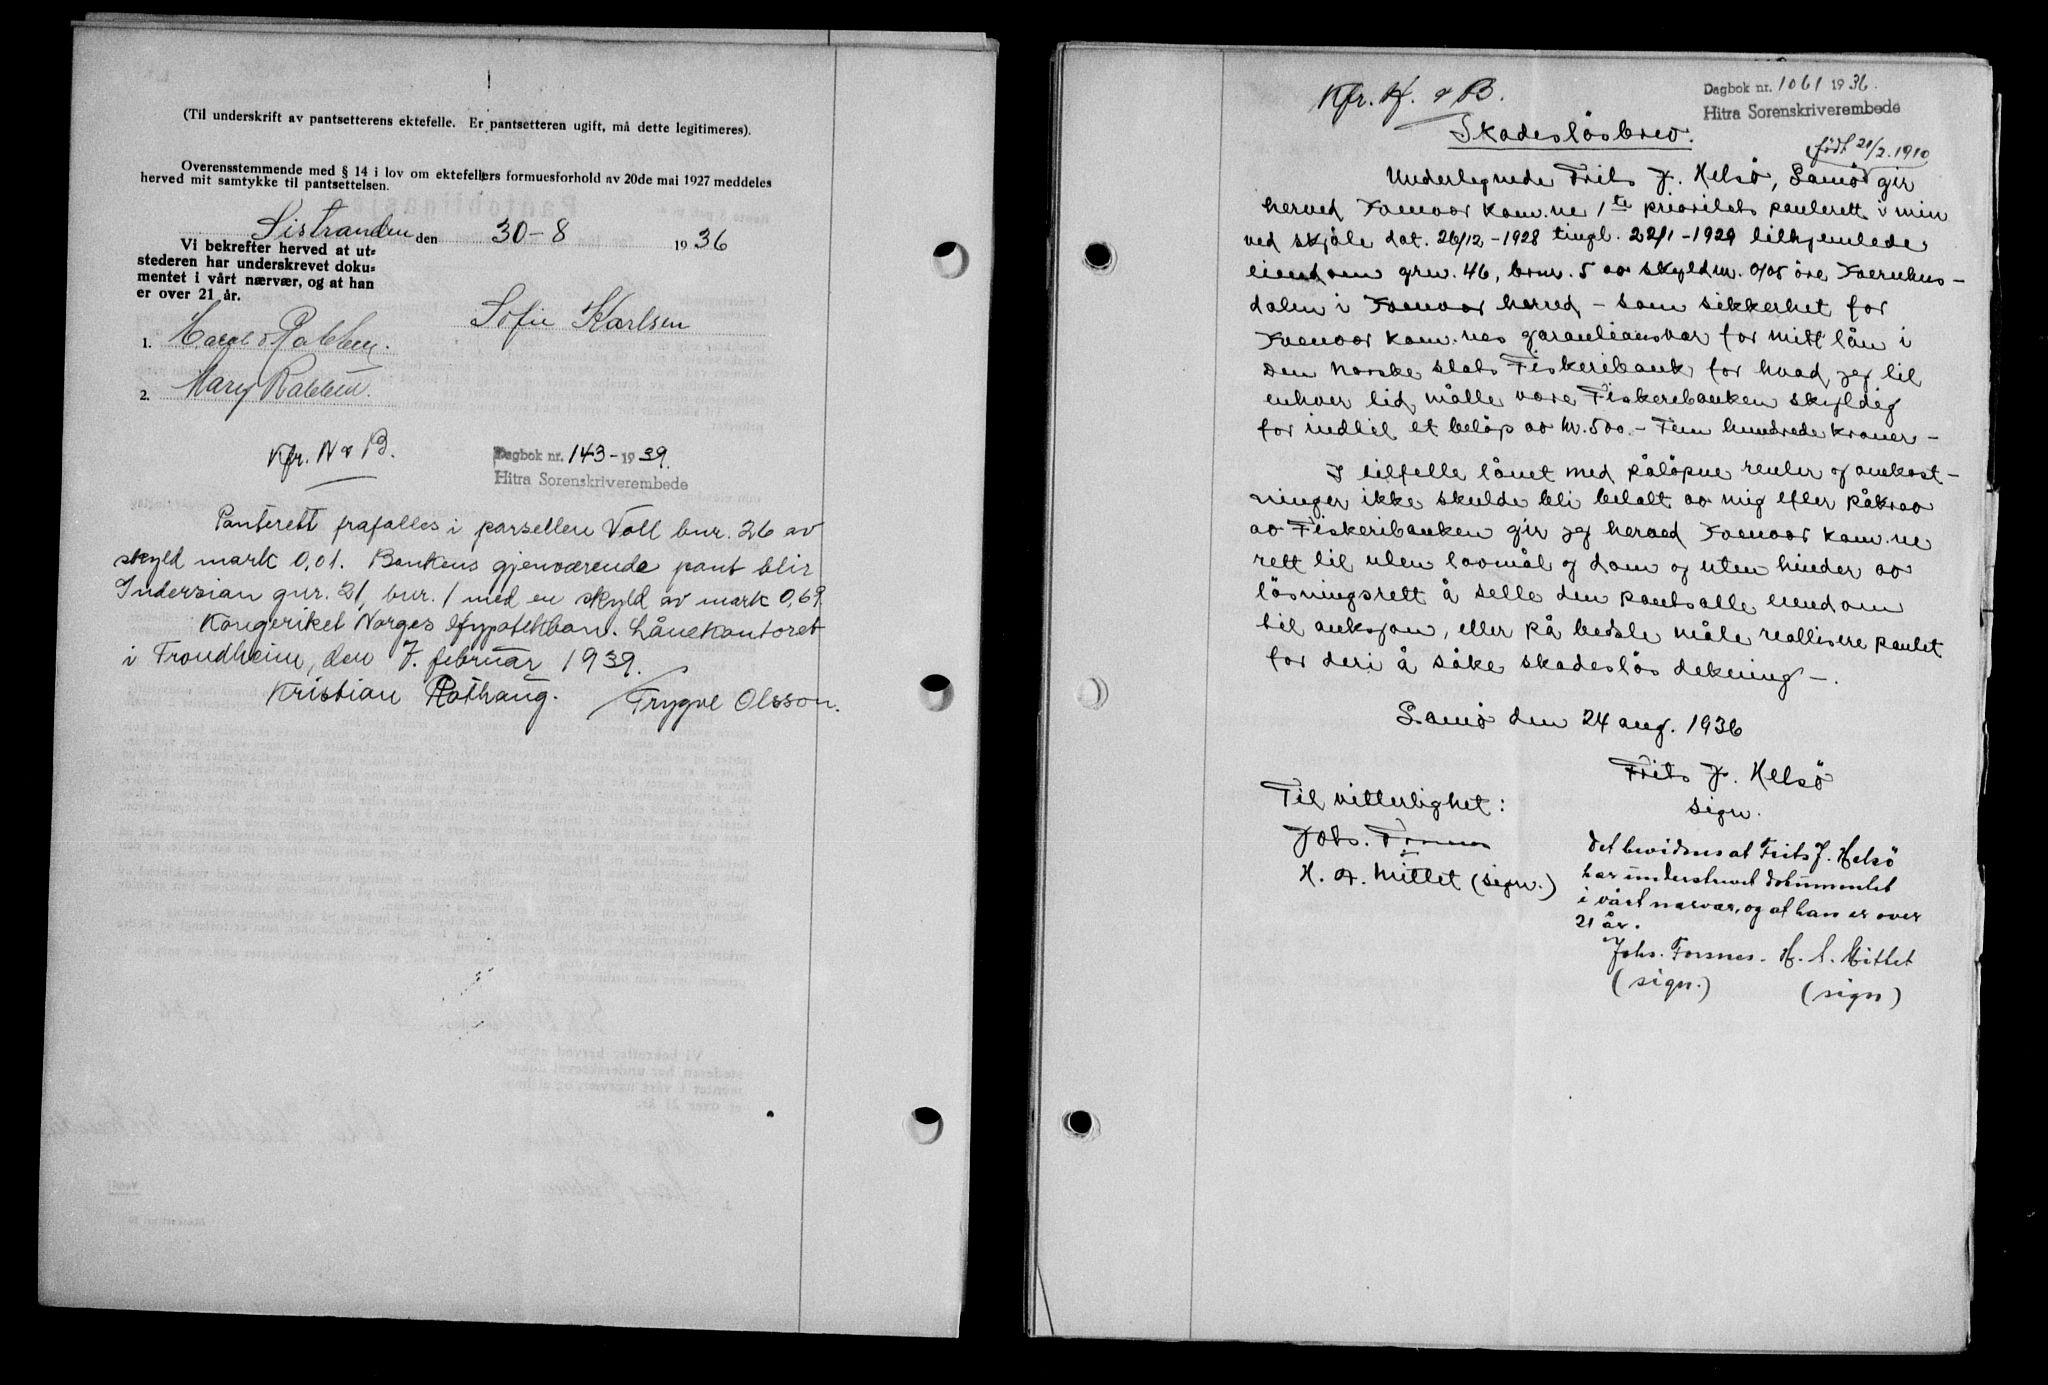 (Til underskrift av pantsetterens ektefelle. Er pantsetteren ugift, må dette legitimeres).
Overensstemmende med § 14 i lov om ektefellers formuesforhold av 20de mai 1927 meddeles
herved mit samtykke til pantsettelsen.
Sistranden den 30-8 1936
Vi bekrefter herved at ut-
stederen har underskrevet doku-
mentet i vårt nærvær, og at han
er over 21 år.
Sofie Karlsen
1. Harald Rabben.
2. Mary Rabben.
Kfr. N & B.
Dagbok nr. 143-1939.
Hitra Sorenskriverembede
Panterett frafalles i parsellen Voll bnr. 26 av
skyld mark 0,01. Bankens gjenværende pant blir
Indersian gnr. 21, bnr. 1 med en skyld av mark 0,69.
Kongeriket Norges Hypotekban. Lånekontoret
i Trondheim, den 7. februar 1939.
Kristian Rothaug. / Trygve Olsson.
Kfr. H. & B.
Dagbok nr. 1061 1936.
Hitra Sorenskriverembede
Skadesløsbrev.
født 21/2.1910
Undertegnede Frits J. Helsö, Samö gir
herved kom.ne 1te prioritets panterett i min
ved skjöte dat. 26/12-1928 tingl. 22/1-1929 tilhjemlede
eiendom grn. 46, brnr. 5 av skyldm. 0/05 öre
dalen i herred – som sikkerhet for
kom.nes garantiansvar for mitt lån i
Den norske stats Fiskeribank for hvad jeg til
enhver tid måtte være Fiskeribanken skyldig
for indtil et belöp av kr. 500.- Fem hundrede kroner –
I tilfelle lånet med påløpne renter og omkost-
ninger ikke skulde bli betalt av mig efter påkrav
av Fiskeribanken gir jeg herved kom.ne
rett til uten lovmål og dom og uten hinder av
løsningsrett å selle den pantsatte eiendom
til auksjon, eller på bedste måte reallisere pantet
for deri å søke skadesløs dekning –.
Samö den 24 aug. 1936
Frits J. Helsö
sign.
Til vitterlighet:
Johs. Formes
H. A. Mittet (sign.)
Det bevidnes at Frits J. Helsö
har underskrevet dokumentet
i vårt nærvær, og at han er over
21 år.
Johs. Formes. H. A. Mittet
(sign.) (sign)